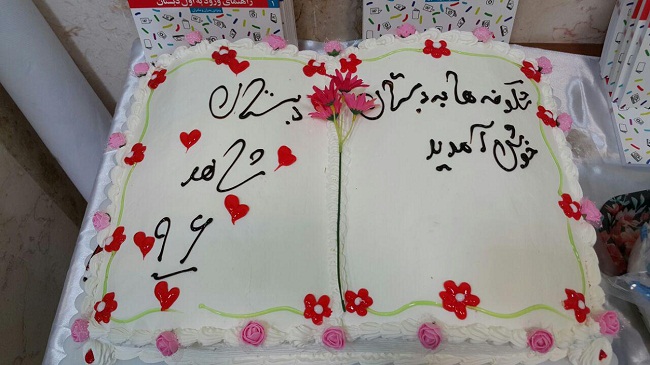 شکوفه ها به دبستان
خوش آمدید
دبستان
شاهد
۹۶
راهنمای ورود به اول دبستان
۱